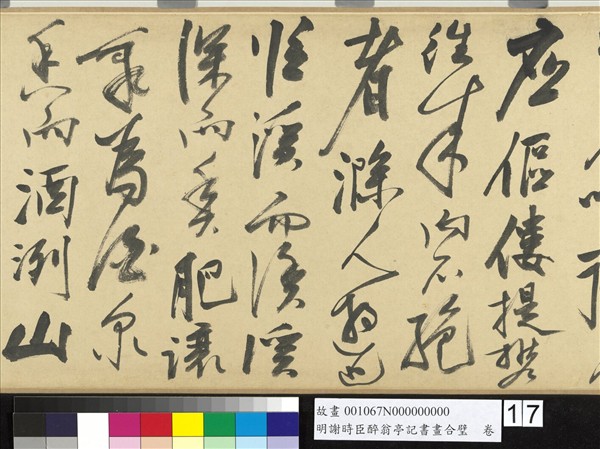 應傴僂提攜
往來而不絕
者滁人遊也
臨溪而漁溪
深而魚肥釀
泉為酒泉
香而酒洌山
故畫 001067N000000000
明謝時臣醉翁亭記書畫合璧 卷
17